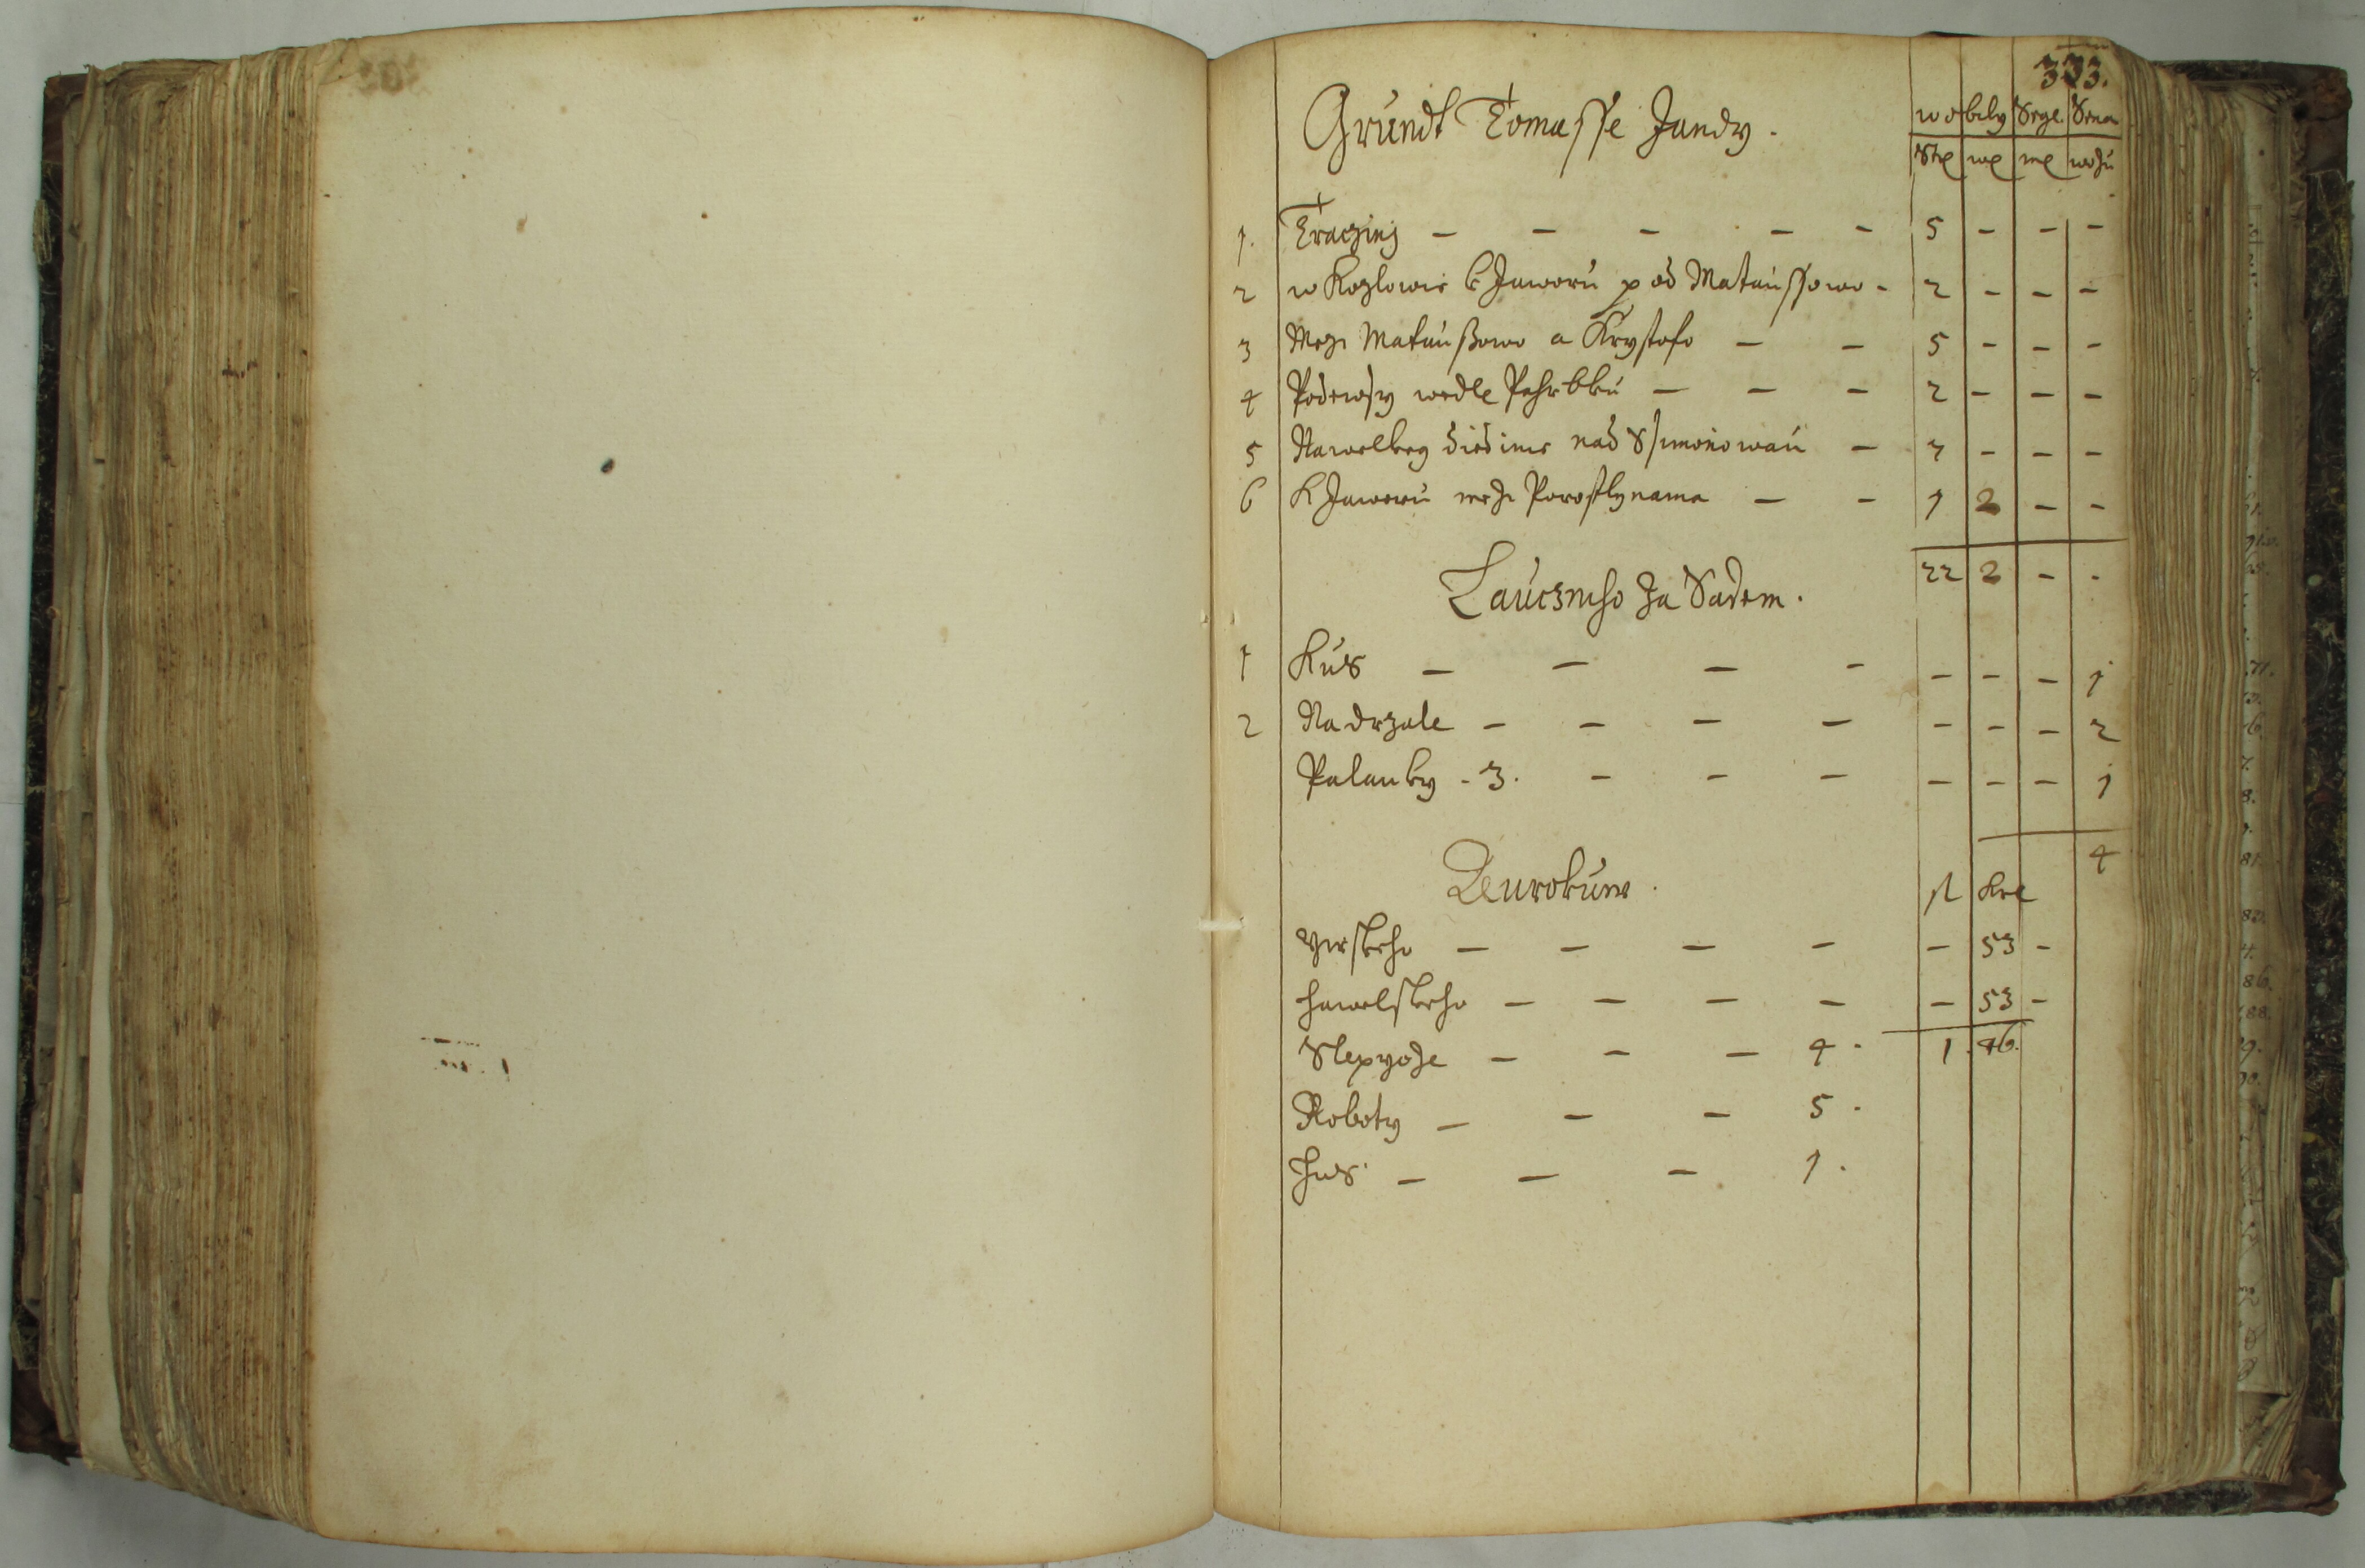 333.
Grundt Tomasse Jandy.
wobily Srge. Sena
Str we we wozu
1. Traczinj — — — — — 5 — — —
2 w Kozlowie k Jaworu pod Mataussowo - 2 — — —
3 Mezy Mataussowo a Krystofo — — 5 — — —
4 Podewsy wedle Pehrbku — — — 2 — — —
5 Nawelkey diedine nad Ssimonowau — 7 — — —
6 K Jaworu mezy Porostlynama — — 1 2 — —
22 2 — -
Lauczneho za Sadem.
1 Kus — — — — — — — 1
2 Nadrzale — — — — — — — 2
Palauky - 3. — — — — — — 1
4
Aurokuw.
fl Kre
Girskeho — — — — — 53 —
hawelskeho — — — — — 53 —
Slepyoze — — — 4. 1. 46.
Roboty — — — 5.
hus — — — 1.